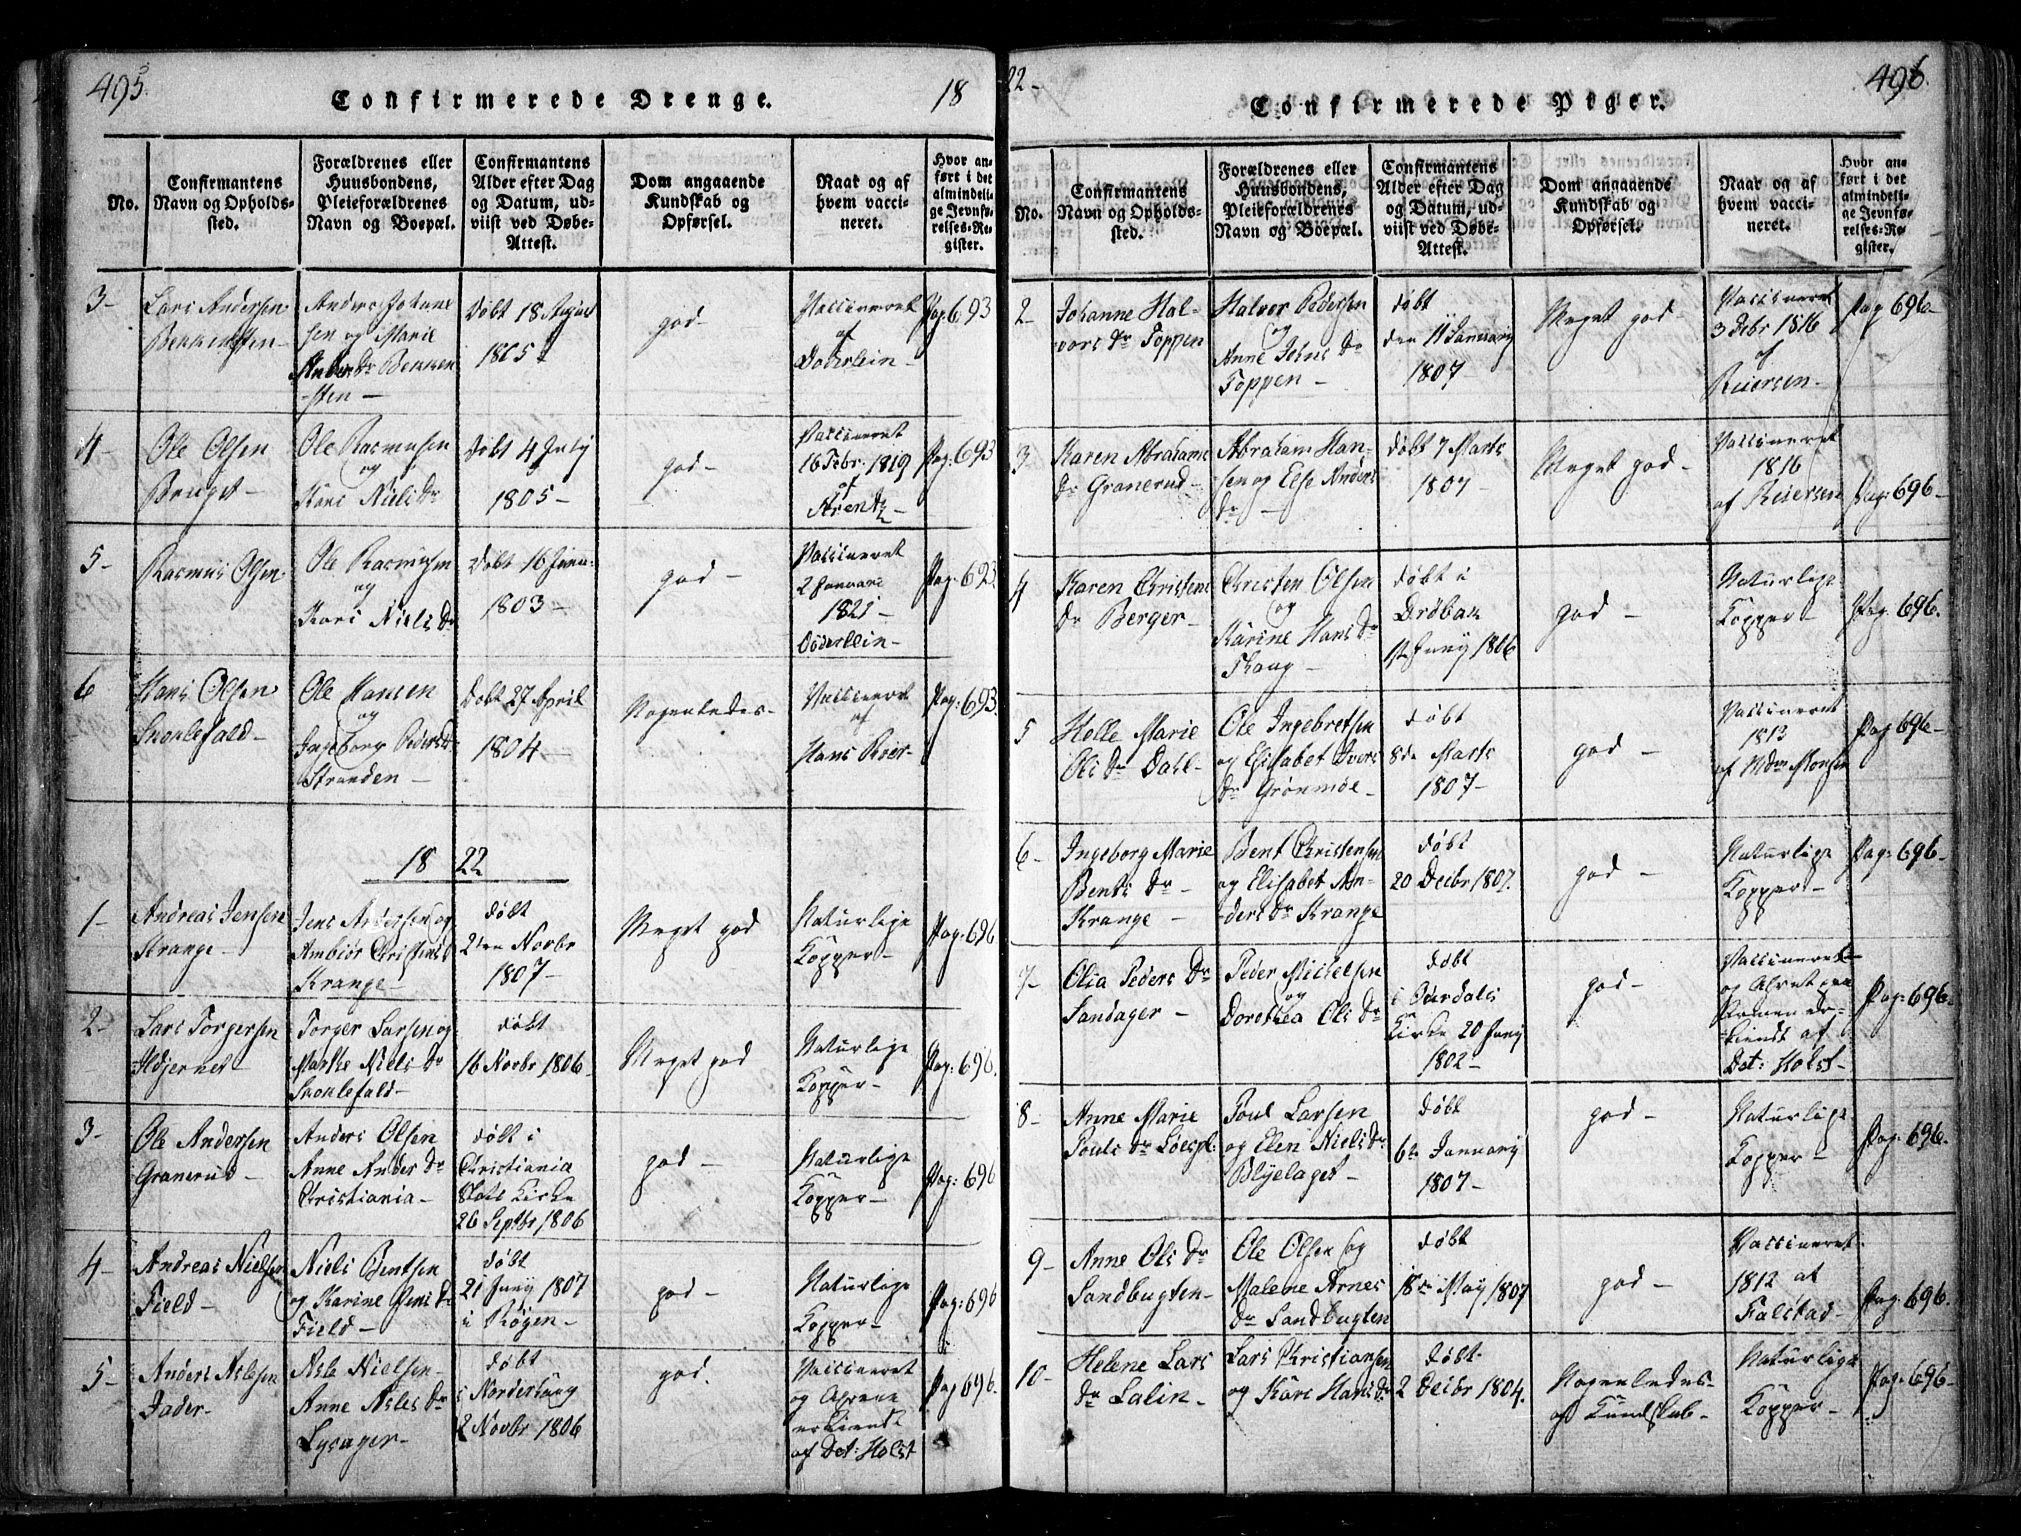 495.
Confirmerede Drenge.
18
No.
Confirmantens
Navn og Opholds-
sted.
Forældrenes eller
Huusbondens,
Pleieforældrenes
Navn og Boepæl.
Confirmantens
Alder efter Dag
og Datum, ud-
viist ved Døbe-
Attest.
Dom angaaende
Kundskab og
Opførsel.
Naar og af
hvem vacci-
neret.
Hvor an-
ført i det
almindeli-
ge Jevnfø-
relses-Re-
gister.
3-
Lars Andersen
Anders Johane
sen og Marie
Anders Dr Bekken
-sten-
Døbt 18 August
1805
god-
Vaccineret
af
Døderlein-
Pag. 693
4-
Ole Olsen
Ole Rasmusen
og
Kari Niels Dr
Døbt 4 July
1805-
god-
Vaccineret
16 Febr. 1819
af
Arentz-
Pag: 693
5-
Rasmus Olsen
Ole Rasmusen
og
Kari Niels Dr
Døbt 16 Janu-
1803-
god-
Vaccineret
2 Januari
1821
Døderlein-
Pag: 693
6
Hans Olsen
Snoklefald-
Ole Hansen
og
Ingeborg Peders Dr
Stranden-
Døbt 27 April
1804-
Nogenledes-
Vaccineret
af
Hans Bier-
Pag: 693.
18 22
1-
Andreas Jensen
Krange-
Jens Andersen og
Ambiør Christens D
Krange-
døbt
2den Novbr
1807-
Meget god
Naturlige
Kopper-
Pag: 696
2-
Lars Torgersen
Ildjernet
Torger Larsen og
Marthe Niels Dr
Snoklefald-
døbt
16 Novbr 1806-
Meget god
Naturlige
Kopper-
Pag: 696.
3-
Ole Andersen
Granerud-
Anders Olsen
Anne Anders Dr
Christiania-
døbt i
Christiania
Slots Kirke
26 Septbr 1806
god-
Naturlige
Kopper-
Pag: 696
4-
Andreas Nielsen
Field-
Niels Bentsen
og Karine Jens Dr
Field-
døbt
21 Juny 1807
i Røgen-
god-
Naturlige
Kopper-
Pag: 696
5-
Anders Aslesen
Jader-
Asle Nielsen-
Anne Asles Dr
Lysager-
døbt
2 Novbr 1806
god.
Vaccineret
og
erkiendt
af Dct: Holst
Pag 696.
22-
Confirmerede Piger.
496.
No.
Confirmantens
Navn og Opholds-
sted.
Forældrenes eller
Huusbondens,
Pleieforældrenes
Navn og Boepæl.
Confirmantens
Alder efter Dag
og Datum, ud-
viist ved Døbe-
Attest.
Dom angaaende
Kundskab og
Opførsel.
Naar og af
hvem vacci-
neret.
Hvor an-
ført i det
almindeli-
ge Jevnfø-
relses-Re-
gister.
2-
Johanne Hal-
vors Dr Toppen
Halvor Pedersen
og
Anne Johns Dr
Toppen-
døbt
den 11 January
1807
Meget god-
Vaccineret
3 Febr 1816
af
Reiersen-
Pag 696-
3
Karen Abrahams
Dr Granerud-
Abraham Han-
sen og Else Anders
Dr-
døbt 7 Marts
1807
Meget god-
Vaccineret
1816
af Reiersen
Pag: 696-
4
Karen Christens
Dr Berger-
Christen Olsen
og
Karine Hans Dr
Skaug-
døbt i
Drøbak
1ste Juny 1806
god-
Naturlige
Kopper-
Pag. 696.
5
Helle Marie
Ols Dr Dahl-
Ole Ingebretsen
og Elisabet Ivers
Dr Grønmoe-
døbt
8de Marts
1807-
god-
Vaccineret
1813
af Mdm Monsen
Pag 696-
6-
Ingeborg Marie
Bents Dr-
Krange-
Bent Christensen
og Elisabet An-
ders Dr Krange
døbt
20 Decbr 1807.
god-
Naturlige
Kopper-
Pag: 696-
7-
Olia Peders Dr
Sandager-
Peder Michelsen
og
Dorethea Ols Dr
døbt
i Ourdals
Kirke 20 Juny
1802-
god-
Vaccineret
og Arret paa
Armen er-
kiendt af
Dct: Holst-
Pag: 696-
8-
Anne Marie
Pouls Dr
Poul Larsen
og Elen Niels Dr
Blylaget-
døbt
6te January
1807-
god-
Naturlige
Kopper-
Pag: 696.
9-
Anne Ols Dr
Sandbugten-
Ole Olsen og
Malene Arnes
Dr Sandbugten
døbt
18de May 1807
god-
Vaccineret
1812 at
Falstad-
Pag: 696.
10-
Helene Lars
Dr Lalin-
Lars Christiansen
og Kari Hans Dr
døbt
2 Decbr 1804.
Nogenledes-
af Kundskab-
Naturlige
Kopper-
Pag: 696-